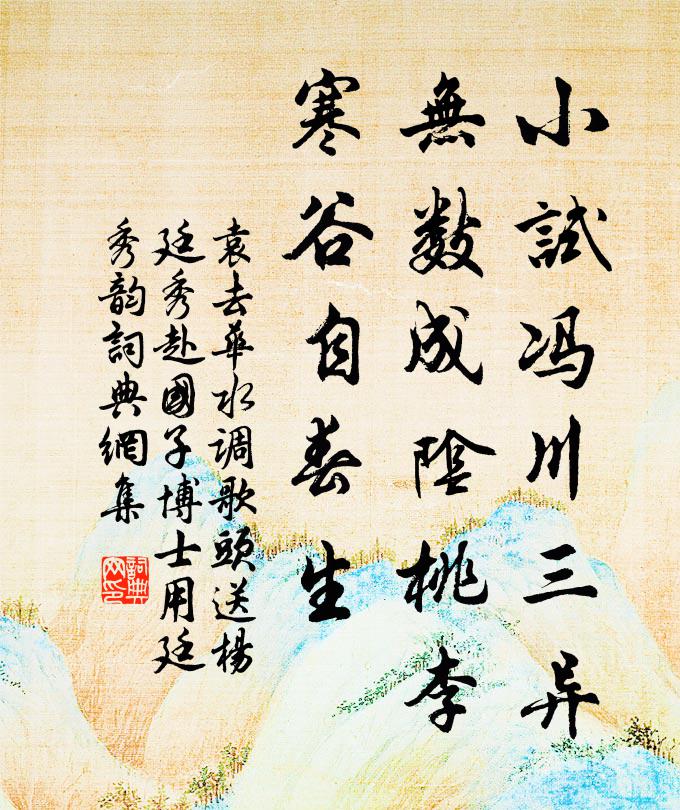 小試冯川三异
無数成陰桃李
寒谷自春生
袁去華水调歌頭送楊
廷秀赴國子博士用廷
秀韵詞典網集
詞典网印